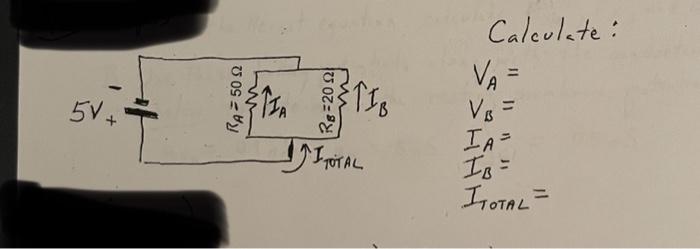 Calculate:
VA =
VB =
IA =
IB =
ITOTAL =
5V
-
+
RA = 50 Ω
IA
RB = 20 Ω
IB
ITOTAL